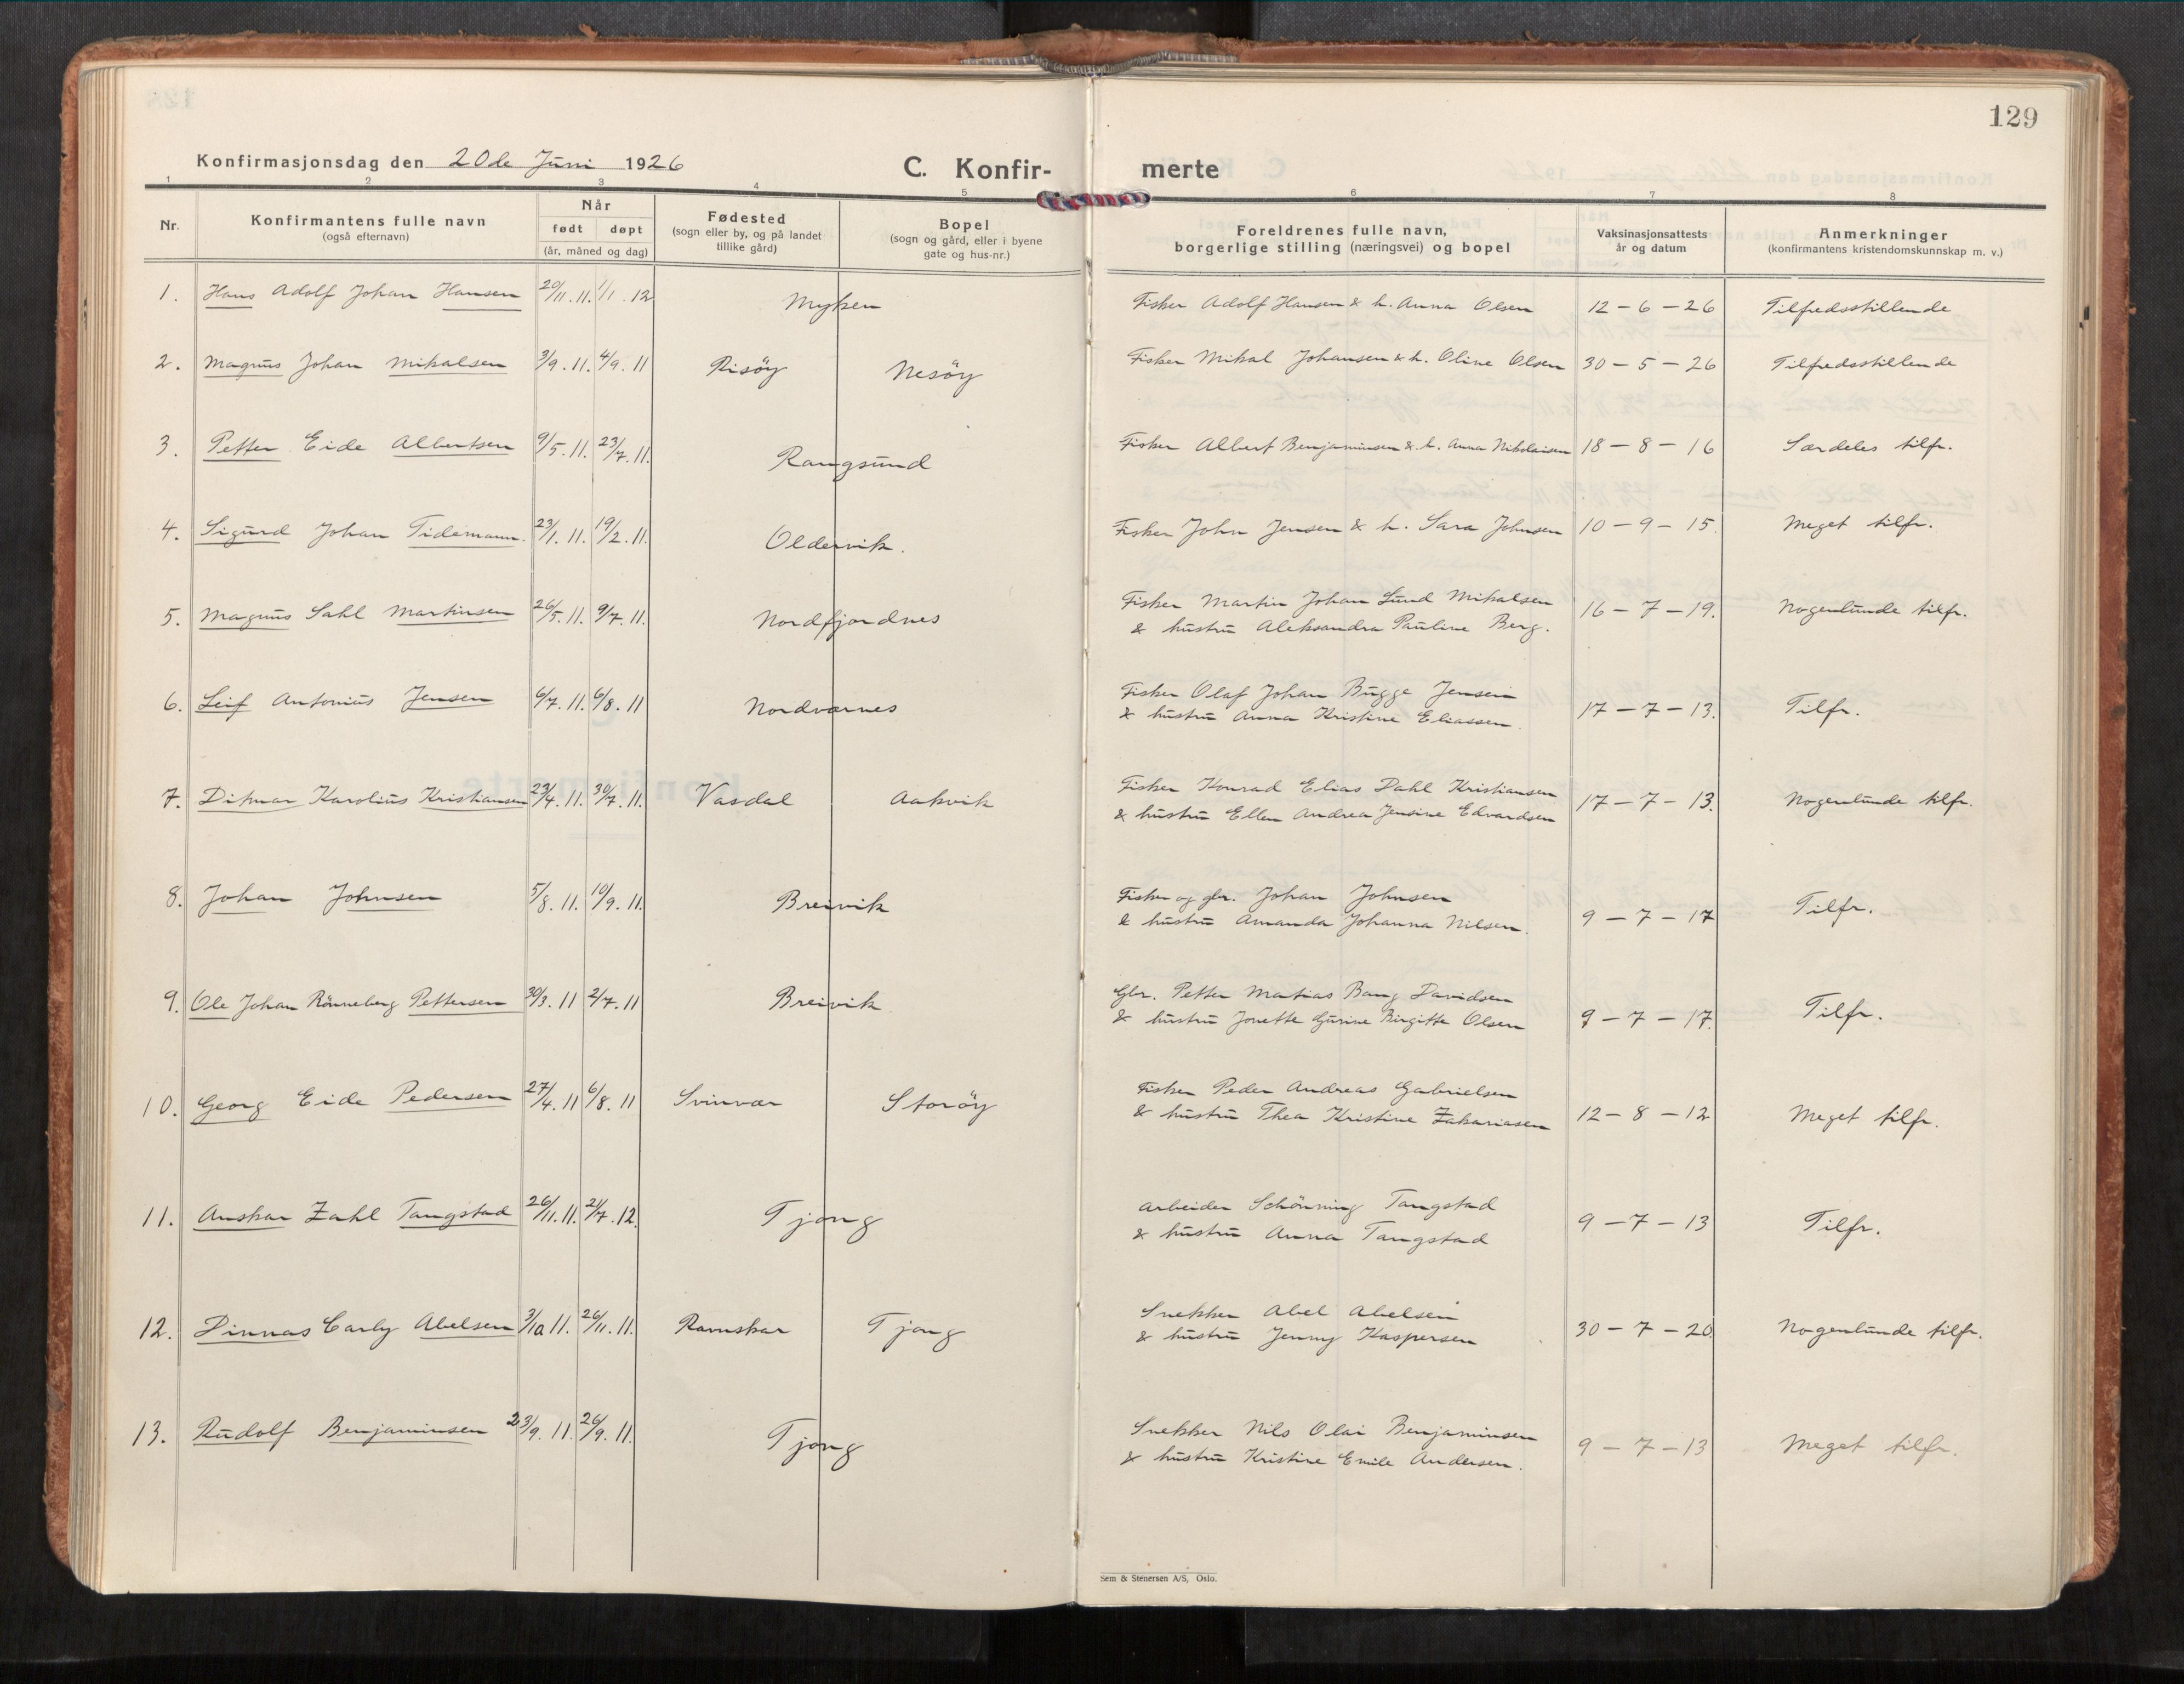 129
Konfirmasjonsdag den 20de Juni 1926
C. Konfir-merte
1 2 3 4 5 6 7 8
Nr.
Konfirmantens fulle navn
(også efternavn)
Når
født døpt
(år, måned og dag)
Fødested
(sogn eller by, og på landet
tillike gård)
Bopel
(sogn og gård, eller i byene
gate og hus-nr.)
Foreldrenes fulle navn,
borgerlige stilling (næringsvei) og bopel
Vaksinasjonsattests
år og datum
Anmerkninger
(konfirmantens kristendomskunnskap m. v.)
1. Hans Adolf Johan Hansen 20/11.11. 1/1.12 Myken Fisker Adolf Hansen & h. Anna Olsen 12-6-26 Tilfredsstillende
2. Magnus Johan Mikalsen 3/9.11. 4/9.11 Risöy Nesöy Fisker Mikal Johansen & h. Oline Olsen 30-5-26 Tilfredsstillende
3. Petter Eide Albertsen 9/5.11. 23/7.11. Rangsund Fisker Albert Benjaminsen & h. Anna Nikolaisen 18-8-16 Særdeles tilfr.
4. Sigurd Johan Tidemann. 23/1.11. 19/2.11. Oldervik. Fisker John Jensen & h. Sara Johnsen 10-9-15. Meget tilfr.
5. Magnus Sahl Martinsen 26/5.11. 9/7.11. Nordfjordnes Fisker Martin Johan Lund Mikalsen
& hustru Aleksandra Pauline Berg. 16-7-19. Nogenlunde tilfr.
6. Leif Antonius Jensen 6/7.11. 6/8.11 Nordvernes Fisker Olaf Johan Bugge Jensen
& hustru Anna Kristine Eliassen. 17-7-13. Tilfr.
7. Ditmar Karolius Kristiansen 23/4.11. 30/7.11. Vasdal Aakvik Fisker Konrad Elias Dahl Kristiansen
& hustru Ellen Andrea Jensine Edvardsen 17-7-13. Nogenlunde tilfr.
8. Johan Johnsen 5/8.11. 10/9.11. Breivik Fisker og gbr. Johan Johnsen
& hustru Amanda Johanna Nilsen. 9-7-17 Tilfr.
9. Ole Johan Rönneberg Pettersen 30/3.11 2/7.11 Breivik Gbr. Petter Matias Bang Davidsen
& hustru Jonette Gurine Birgitte Olsen 9-7-17. Tilfr.
10. Georg Eide Pedersen 27/4.11 6/8.11 Svinvær Storöy Fisker Peder Andreas Gabrielsen
& hustru Thea Kristine Zakariasen 12-8-12 Meget tilfr.
11. Anskar Zahl Tangstad 26/11.11. 21/7.12. Tjong Arbeider Schönning Tangstad
& hustru Anna Tangstad 9-7-13 Tilfr.
12. Dinnas Carly Abelsen 3/10.11. 26/11.11. Ramskar Tjong Snekker Abel Abelsen
& hustru Jenny Kaspersen 30-7-20. Nogenlunde tilfr.
13. Rudolf Benjaminsen 23/9.11. 26/9.11. Tjong Snekker Nils Olai Benjaminsen
& hustru Kristine Emile Andersen. 9-7-13 Meget tilfr.
Sem & Stenersen A/S, Oslo.